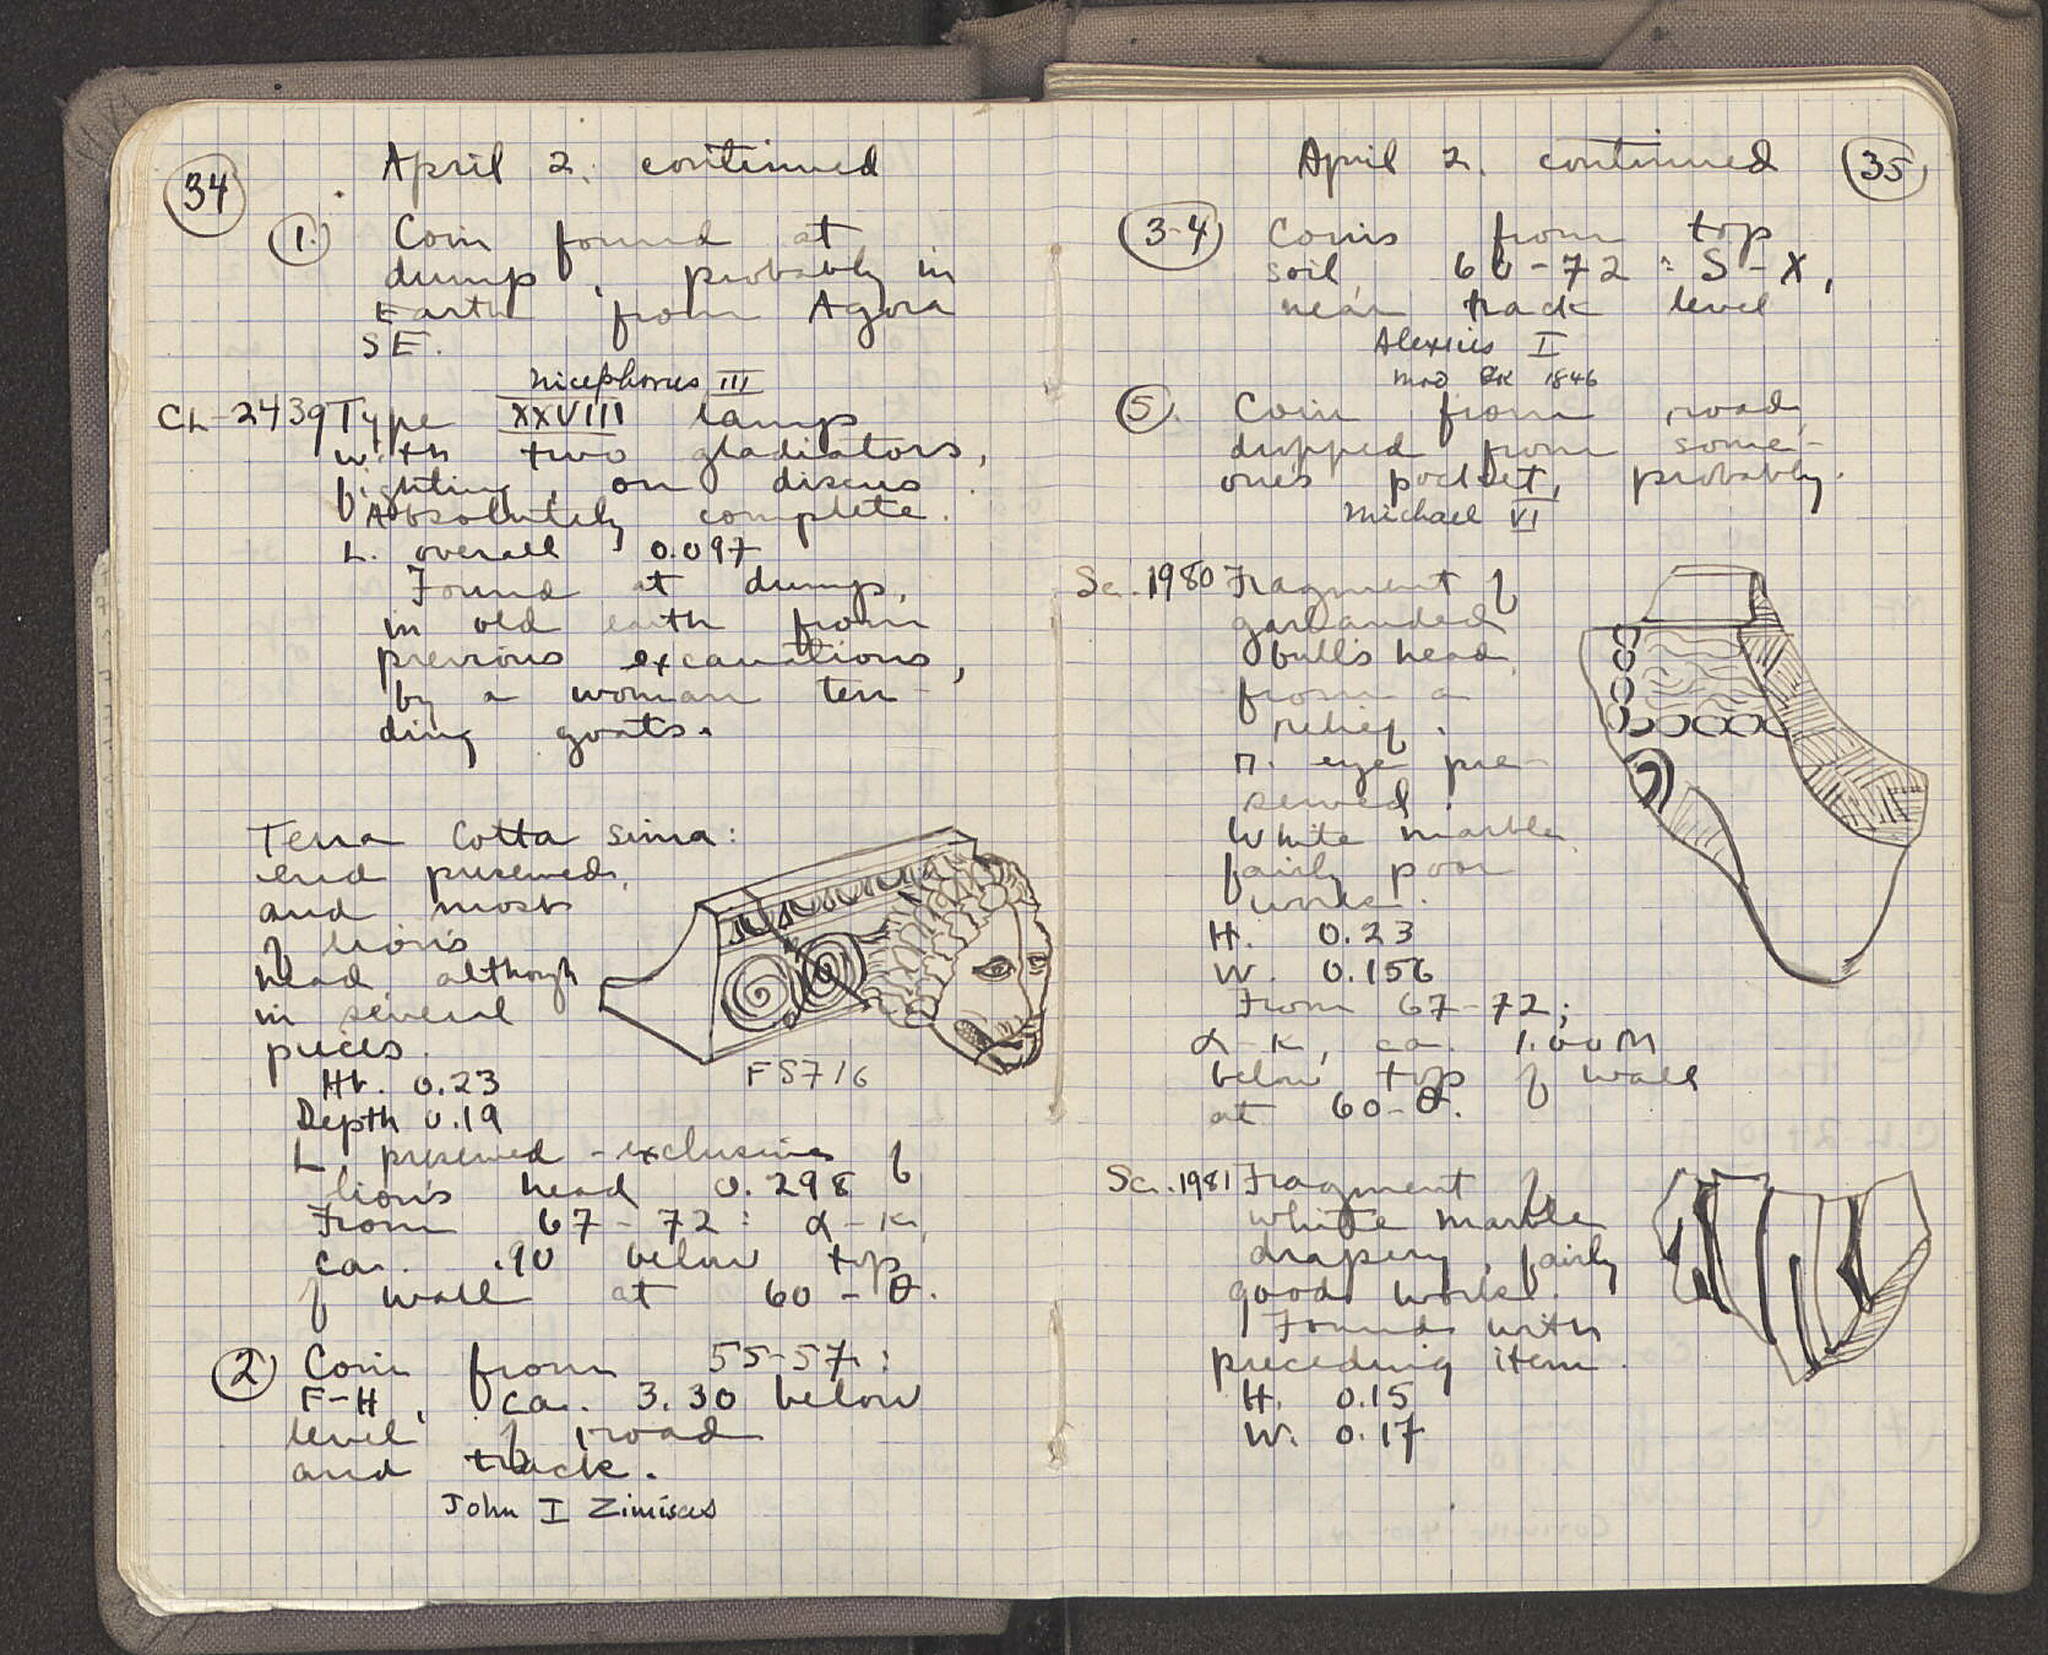 34
April 2, continued
1. Coin found at
dump, probably in
Earth from Agora
SE.
Nicephorus III
CL-2439 Type XXVIII lamp
with two gladiators,
fighting, on discus.
Absolutely complete.
L. overall 0.097
Found at dump,
in old earth from
previous excavations,
by a woman ten-
ding goats.
Terra Cotta sima:
end preserved,
and most
of lion's
head although
in several
pieces.
Ht. 0.23
Depth 0.19
L. preserved - exclusive of
lion's head 0.298
From 67-72: α-κ,
ca. .90 below top
of wall at 60-θ.
FS716
2 Coin from 55-57:
F-H, ca. 3.30 below
level of road
and track.
John I Zimisces
April 2, continued
35
3-4 Coins from top
soil, 60-72: S-X,
near track level
Alexius I
Mod GK 1846
5. Coin from road,
dropped from some-
one's pocket, probably.
Michael VI
Sc. 1980 Fragment of
garlanded
bull's head
from a
relief.
r. eye pre-
served.
White marble,
fairly poor
work.
H. 0.23
W. 0.156
From 67-72;
α-κ, ca. 1.00 M
below top of wall
at 60-θ.
Sc. 1981 Fragment of
white marble
drapery, fairly
good work.
Found with
preceding item.
H. 0.15
W. 0.17